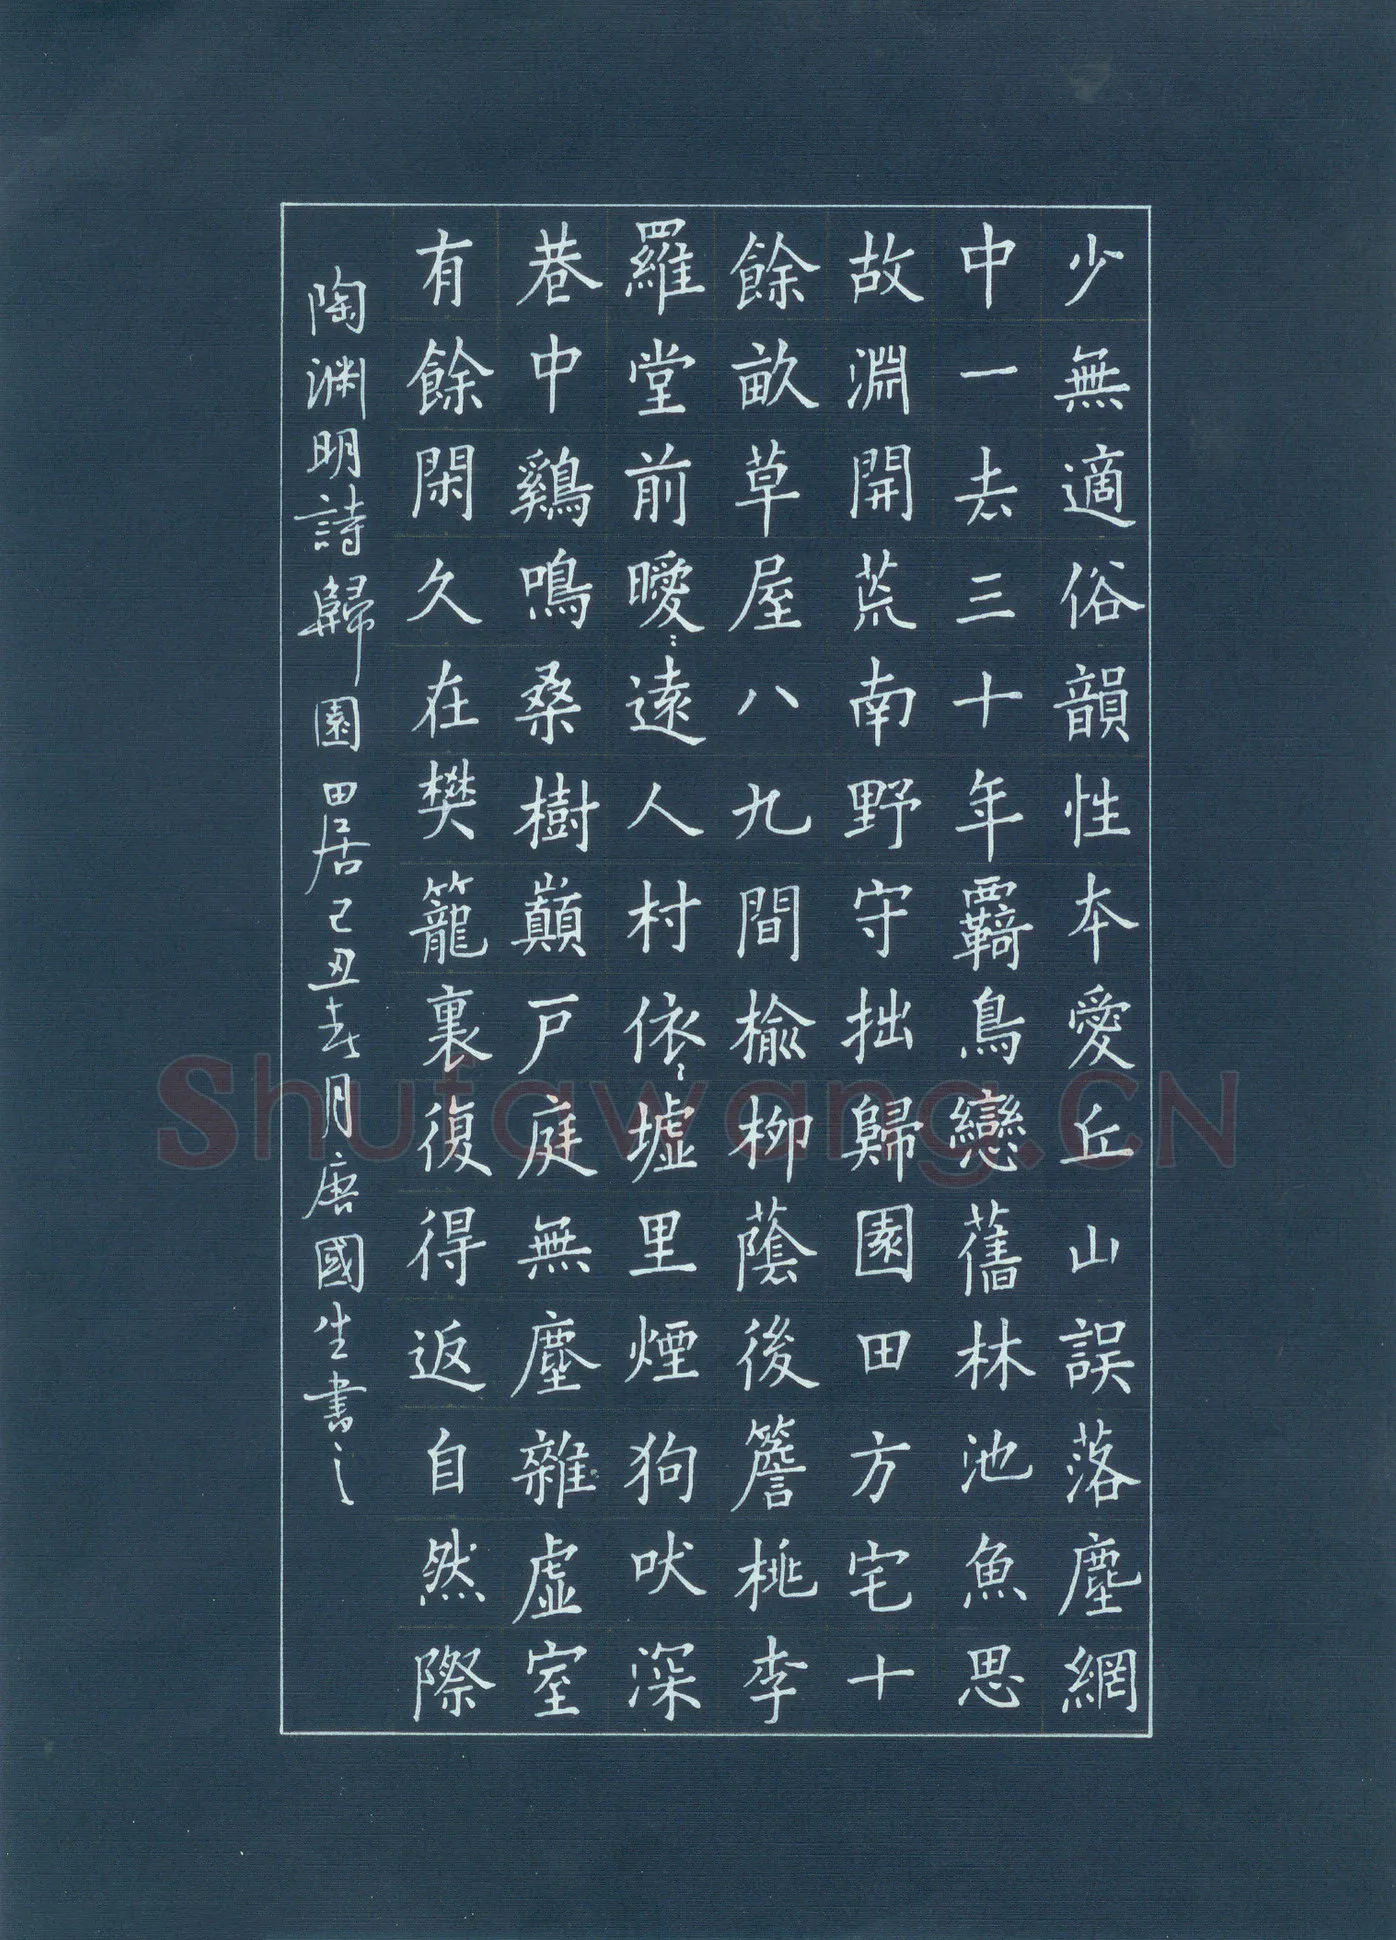 少無適俗韻性本愛丘山誤落塵網
中一去三十年羇鳥戀舊林池魚思
故淵開荒南野守拙歸園田方宅十
餘畝草屋八九間榆柳蔭後簷桃李
羅堂前曖〻遠人村依〻墟里煙狗吠深
巷中鷄鳴桑樹巔戶庭無塵雜虛室
有餘閑久在樊籠裏復得返自然際
陶渊明詩歸園田居己丑春月唐國生書之
Shufawang.CN